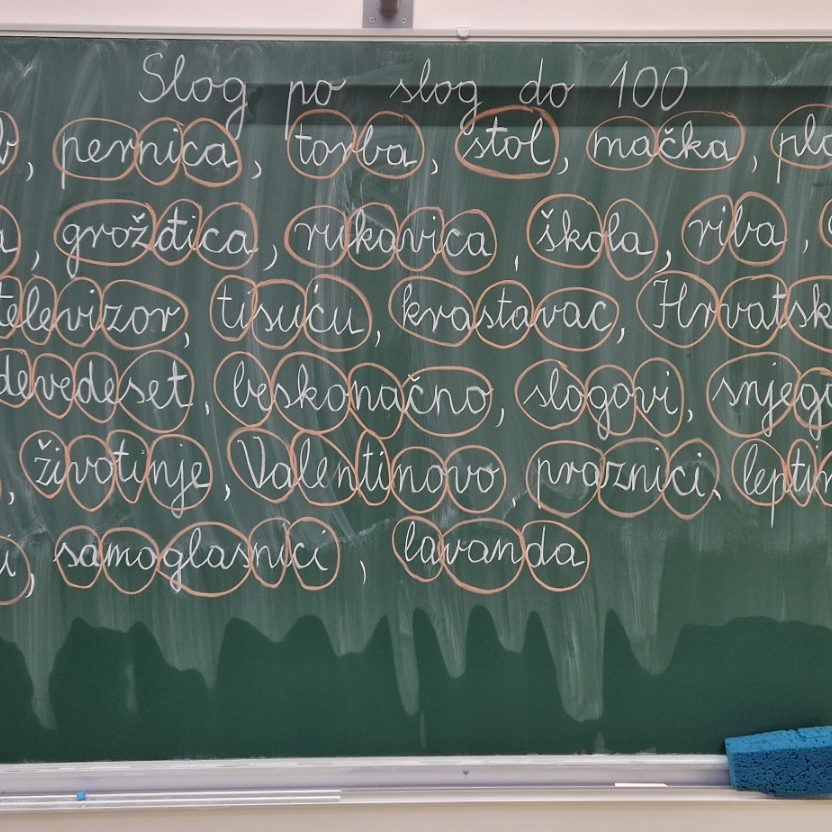 Slog po slog do 100
, pernica, torba, stol, mačka, plo
, grožđica, rukavica, škola, riba,
televizor, tisuću, krastavac, Hrvatsk
devedeset, beskonačno, slogovi, snjego
, životinje, Valentinovo praznici, leptir
i, samoglasnici, lavanda